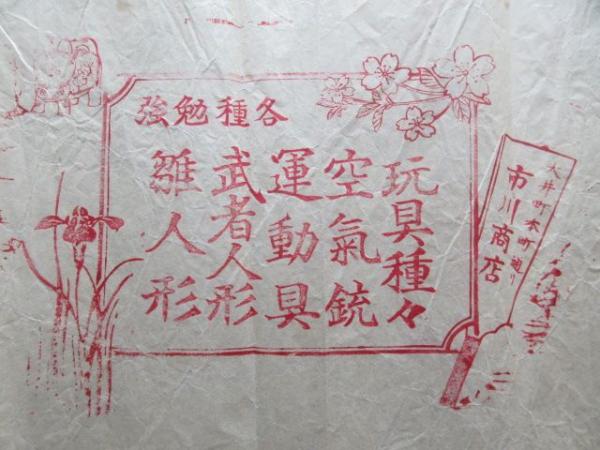 各種勉強
玩具種々
空氣銃
運動具
武者人形
雛人形
大井町本町通り
市川商店